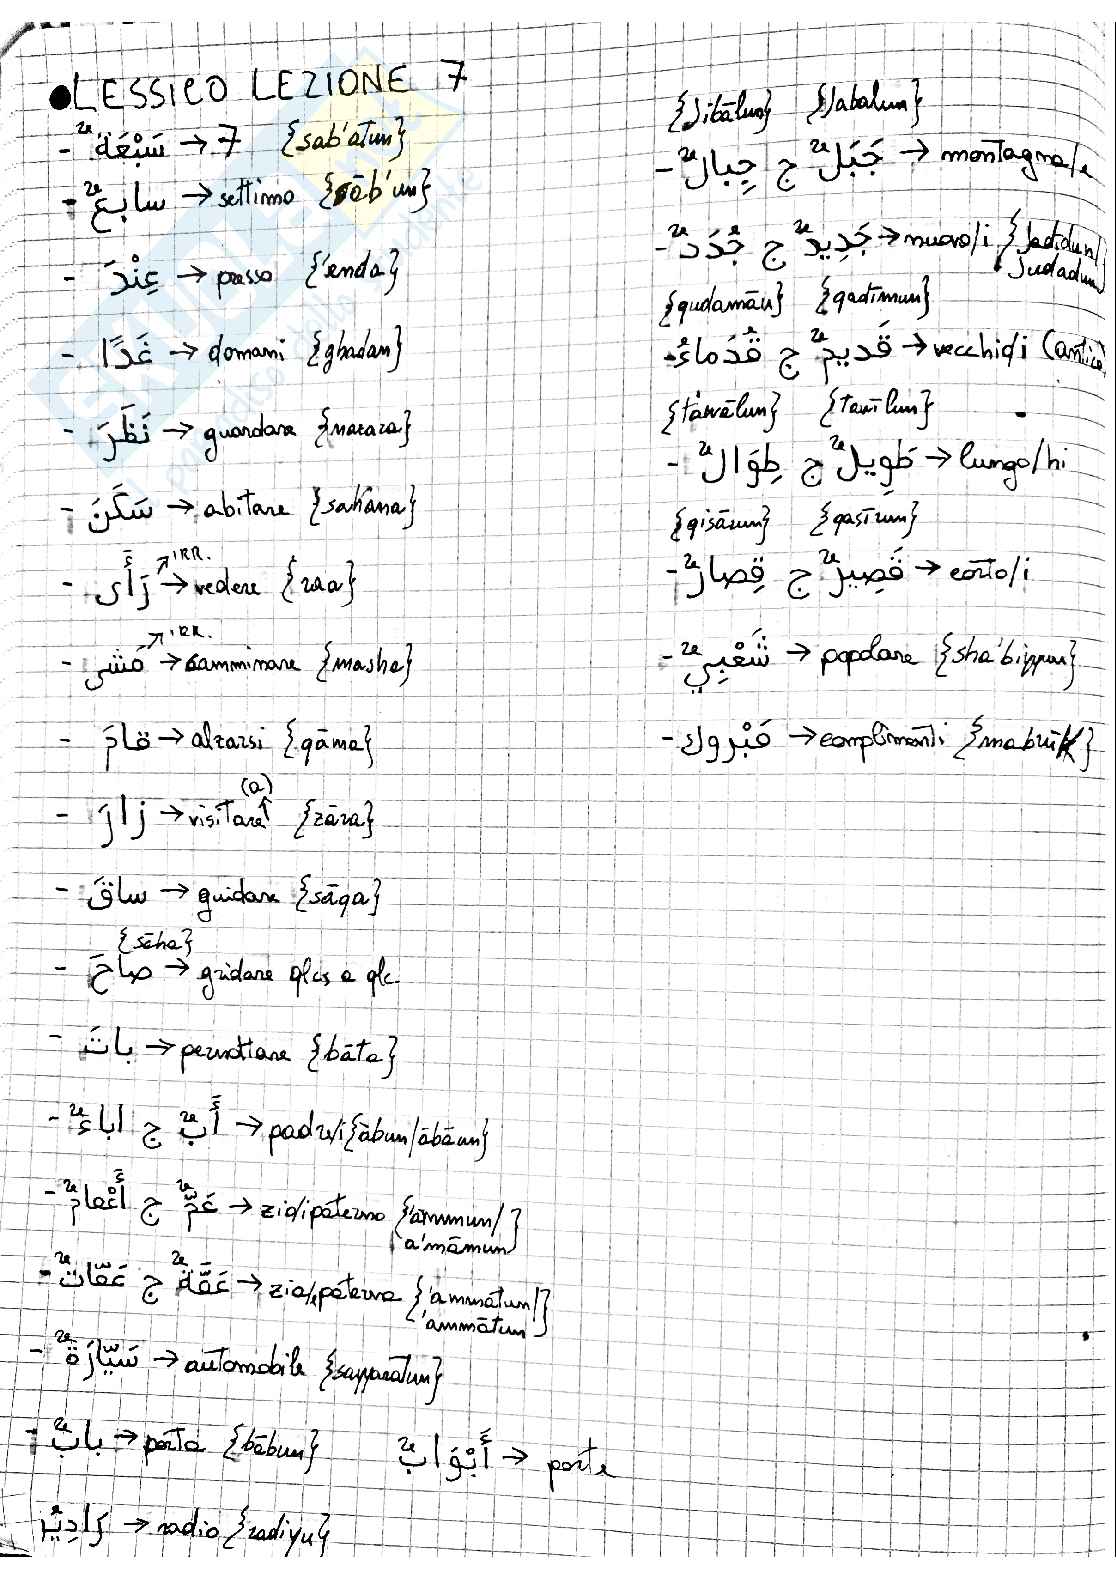 ●LESSICO LEZIONE 7
- سَبْعَةٌ → 7 {sab'atun}
- سابعٌ → settimo {sāb'un}
- عِنْدَ → presso {'enda}
- غَدًا → domani {ghadan}
- نَظَرَ → guardare {nazara}
- سَكَنَ → abitare {sakana}
- رَأَى → vedere {raa} ↗IRR.
- مَشى → camminare {masha} ↗IRR.
- قامَ → alzarsi {qāma}
- زارَ → visitare (a) {zāra}
- ساقَ → guidare {sāqa}
{sāha}
- صاحَ → gridare qlcs a qlc.
- باتَ → pernottare {bāta}
- أَبٌ ج اباءٌ → padre/i {ābun/ābāun}
- عَمٌّ ج أَعْمامٌ → zio/i paterno {'āmmun/
a'māmun}
- عَمَّةٌ ج عَمّاتٌ → zia/e paterna {'ammatun/
'ammātun}
- سَيّارَةٌ → automobile {sayyaratun}
- بابٌ → porta {bābun} أَبْوَابٌ → porte
رَادِيُو → radio {radiyu}
{Jibālun} {Jabalun}
- جَبَلٌ ج جِبالٌ → montagna/e
- جَدِيدٌ ج جُدَدٌ → nuovo/i {Jadidun/
Judadun}
{qudamāu} {qadīmun}
- قَديمٌ ج قُدَماءُ → vecchio/i (antico)
{tawālun} {tawīlun}
- طَوِيلٌ ج طِوَالٌ → lungo/hi
{qisārun} {qasīrun}
- قَصِيرٌ ج قِصارٌ → corto/i
- شَعْبِيٌ → popolare {sha'biyyun}
- مَبْروك → complimenti {mabrūk}